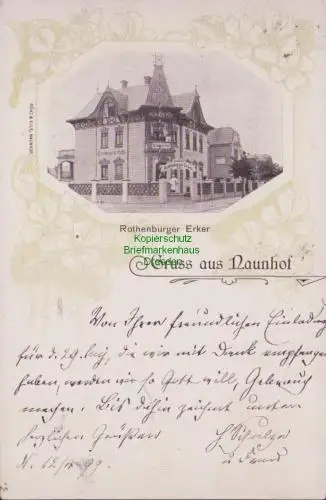 Rothenburger Erker
Kopierschutz
Briefmarkenhaus
Dresden
Gruss aus Naunhof
Von Ihrer freundlichen Einladung
für d. 29. , die wir mit Dank empfangen
haben, werden wir so Gott will, Gebrauch
machen! Bis dahin zeichnet unter
herzlichen Grüßen
N. 12/ 99.
u. Frau